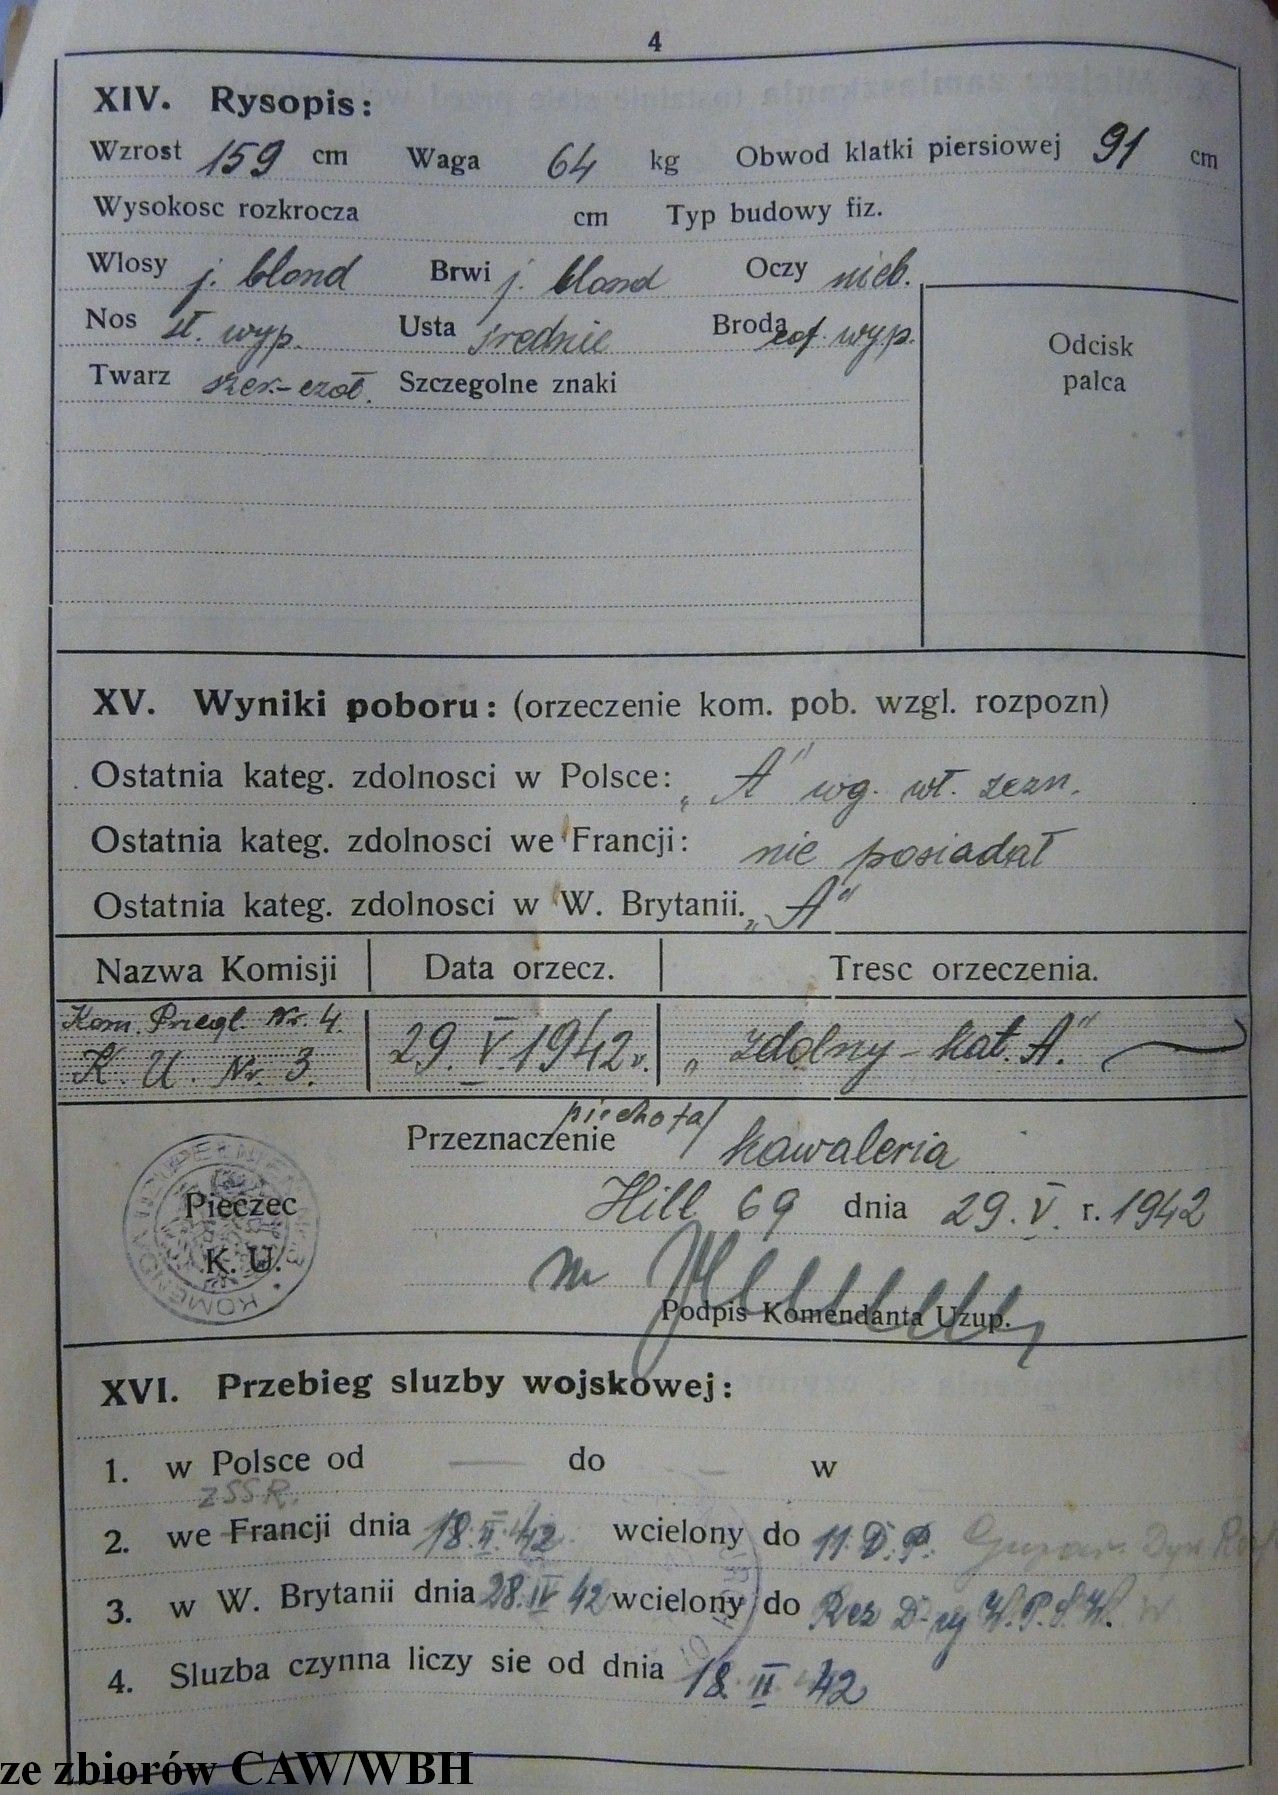 4
XIV. Rysopis:
Wzrost 159 cm Waga 64 kg Obwod klatki piersiowej 91 cm
Wysokosc rozkrocza cm Typ budowy fiz.
Wlosy j. blond Brwi j. blond Oczy nieb.
Nos wyp. Usta średnie Broda wyp.
Twarz Szczegolne znaki
Odcisk
palca
XV. Wyniki poboru: (orzeczenie kom. pob. wzgl. rozpozn)
Ostatnia kateg. zdolnosci w Polsce: „A" wg. wł. zezn.
Ostatnia kateg. zdolnosci we Francji: nie posiadał
Ostatnia kateg. zdolnosci w W. Brytanii. „A"
Nazwa Komisji Data orzecz. Tresc orzeczenia.
Kom. Przegl. Nr. 4.
K. U. Nr. 3. 29.V.1942r. „zdolny - kat. A."
piechota/
Przeznaczenie kawaleria
Hill 69 dnia 29.V. r. 1942
Pieczec
K. U.
KOMENDA UZUPEŁNIEŃ NR 3
Podpis Komendanta Uzup.
XVI. Przebieg sluzby wojskowej:
1. w Polsce od — do — w
ZSSR.
2. we Francji dnia 18.II.42 wcielony do 11. D. P.
3. w W. Brytanii dnia 28.IV 42 wcielony do Rez D-cy W.P.Ś.W.
4. Sluzba czynna liczy sie od dnia 18 II 42
ze zbiorów CAW/WBH